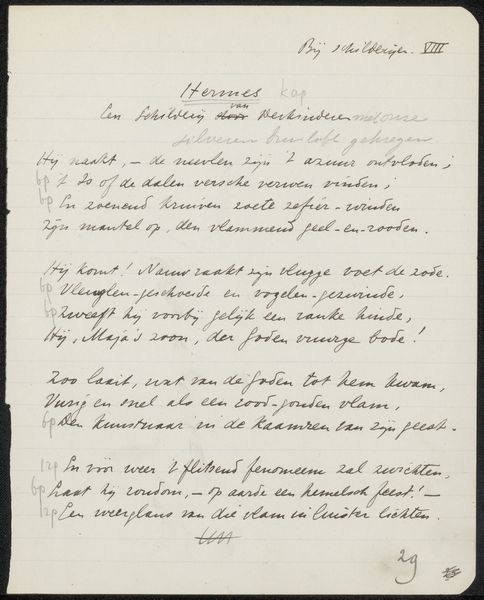 Bij schilderijen. VIII
Hermes kap
Een Schilderij door van Derkinderen met onze
zilveren bruiloft gekregen
Hij naakt, – de nevelen zijn 't azuur ontvloden;
6p 't Is of de dalen versche verwen vinden;
6p En zoenend kruiven zoete zefier-winden
Zijn mantel op, den vlammend geel-en-rooden.
Hij komt! Nauw raakt zijn vlugge voet de zode.
6p Vleuglen-geschoeide en vogelen-gezwinde,
6p Zweeft hij voorbij gelijk een ranke hinde,
Hij, Maja's zoon, der Goden vuurge bode!
Zoo laait, wat van de Goden tot hem kwam,
Vurig en snel als een rood-gouden vlam,
6p Den kunstnaar in de kaamren van zijn geest. –
12p En vóór weer 't flitsend fenomeem zal zwichten,
6p Laat hij rondom, – op aarde een hemelsch feest! –
12p Een weerglans van die vlam in luister lichten.
29